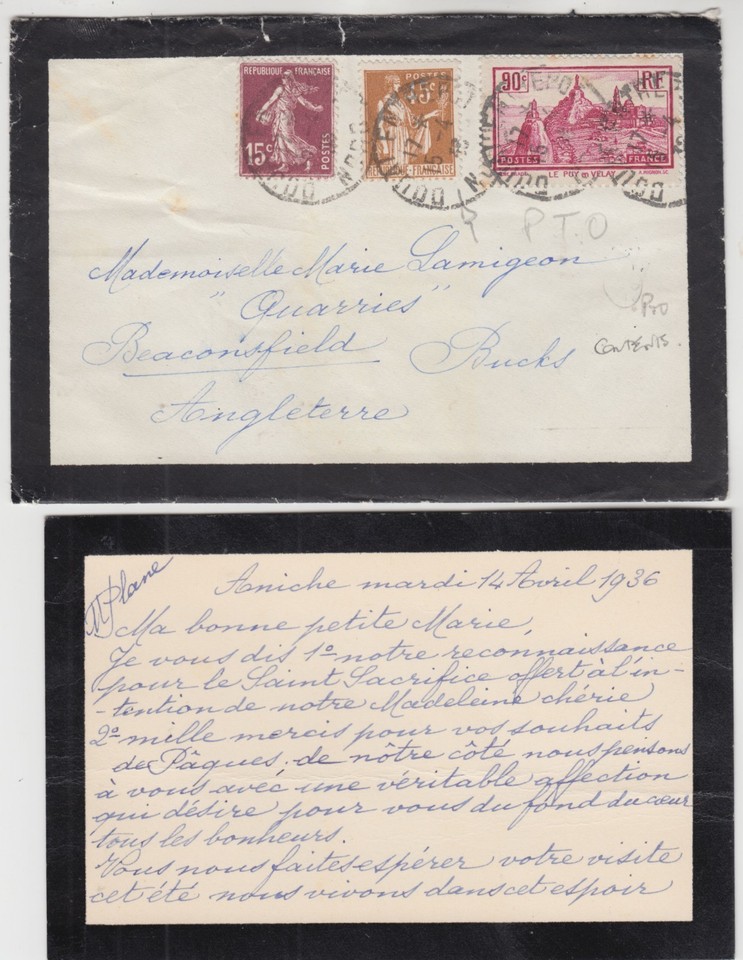 REPUBLIQUE FRANÇAISE
15c
POSTES
POSTES
90c
RF
POSTES
FRANCE
LE PUY EN VELAY
P.T.O
Mademoiselle Marie Lamigeon
"Quarries"
Beaconsfield Bucks
Angleterre
CONTENTS.
Aniche mardi 14 Avril 1936
Ma bonne petite Marie,
Je vous dis 1º notre reconnaissance
pour le Saint Sacrifice offert à l'in-
-tention de notre Madeleine chérie
2º mille mercis pour vos souhaits
de Pâques. de nôtre côté nous pensons
à vous avec une véritable affection
qui désire pour vous du fond du cœur
tous les bonheurs.
Vous nous faites espérer votre visite
cet été nous vivons dans cet espoir